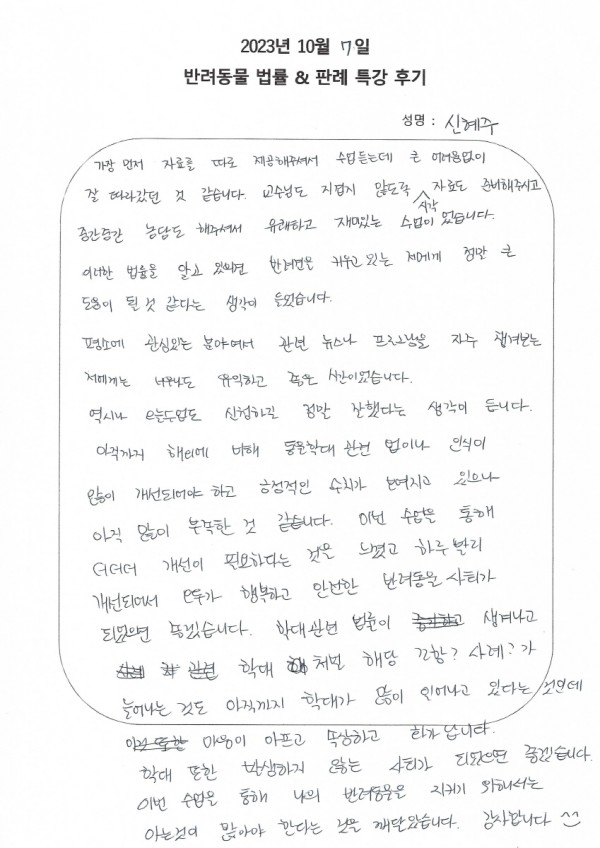 2023년 10월 7일
반려동물 법률 & 판례 특강 후기
성명 : 신혜주
가장 먼저 자료를 따로 제공해주셔서 수업듣는데 큰 어려움없이
잘 따라갔던 것 같습니다. 교수님도 지겹지 않도록 시각 자료도 준비해주시고
중간중간 농담도 해주셔서 유쾌하고 재미있는 수업이었습니다.
이러한 법률을 알고 있으면 반려견을 키우고 있는 저에게 정말 큰
도움이 될 것 같다는 생각이 들었습니다.
평소에 관심있는 분야여서 관련 뉴스나 프로그램을 자주 챙겨보는
저에게는 너무나도 유익하고 좋은 시간이었습니다.
역시나 오늘수업도 신청하길 정말 잘했다는 생각이 듭니다.
아직까지 해외에 비해 동물학대 관련 법이나 인식이
많이 개선되어야 하고 긍정적인 수치가 보여지고 있으나
아직 많이 부족한 것 같습니다. 이번 수업을 통해
더더더 개선이 필요하다는 것을 느꼈고 하루 빨리
개선되어서 모두가 행복하고 안전한 반려동물 사회가
되었으면 좋겠습니다. 학대관련 법률이 생겨나고
학대 처벌 해당 조항? 사례?가
늘어나는 것도 아직까지 학대가 많이 일어나고 있다는 것인데
마음이 아프고 속상하고 화가 납니다.
학대 또한 발생하지 않는 사회가 되었으면 좋겠습니다.
이번 수업을 통해 나의 반려동물을 지키기 위해서는
아는것이 많아야 한다는 것을 깨달았습니다. 감사합니다 ^^